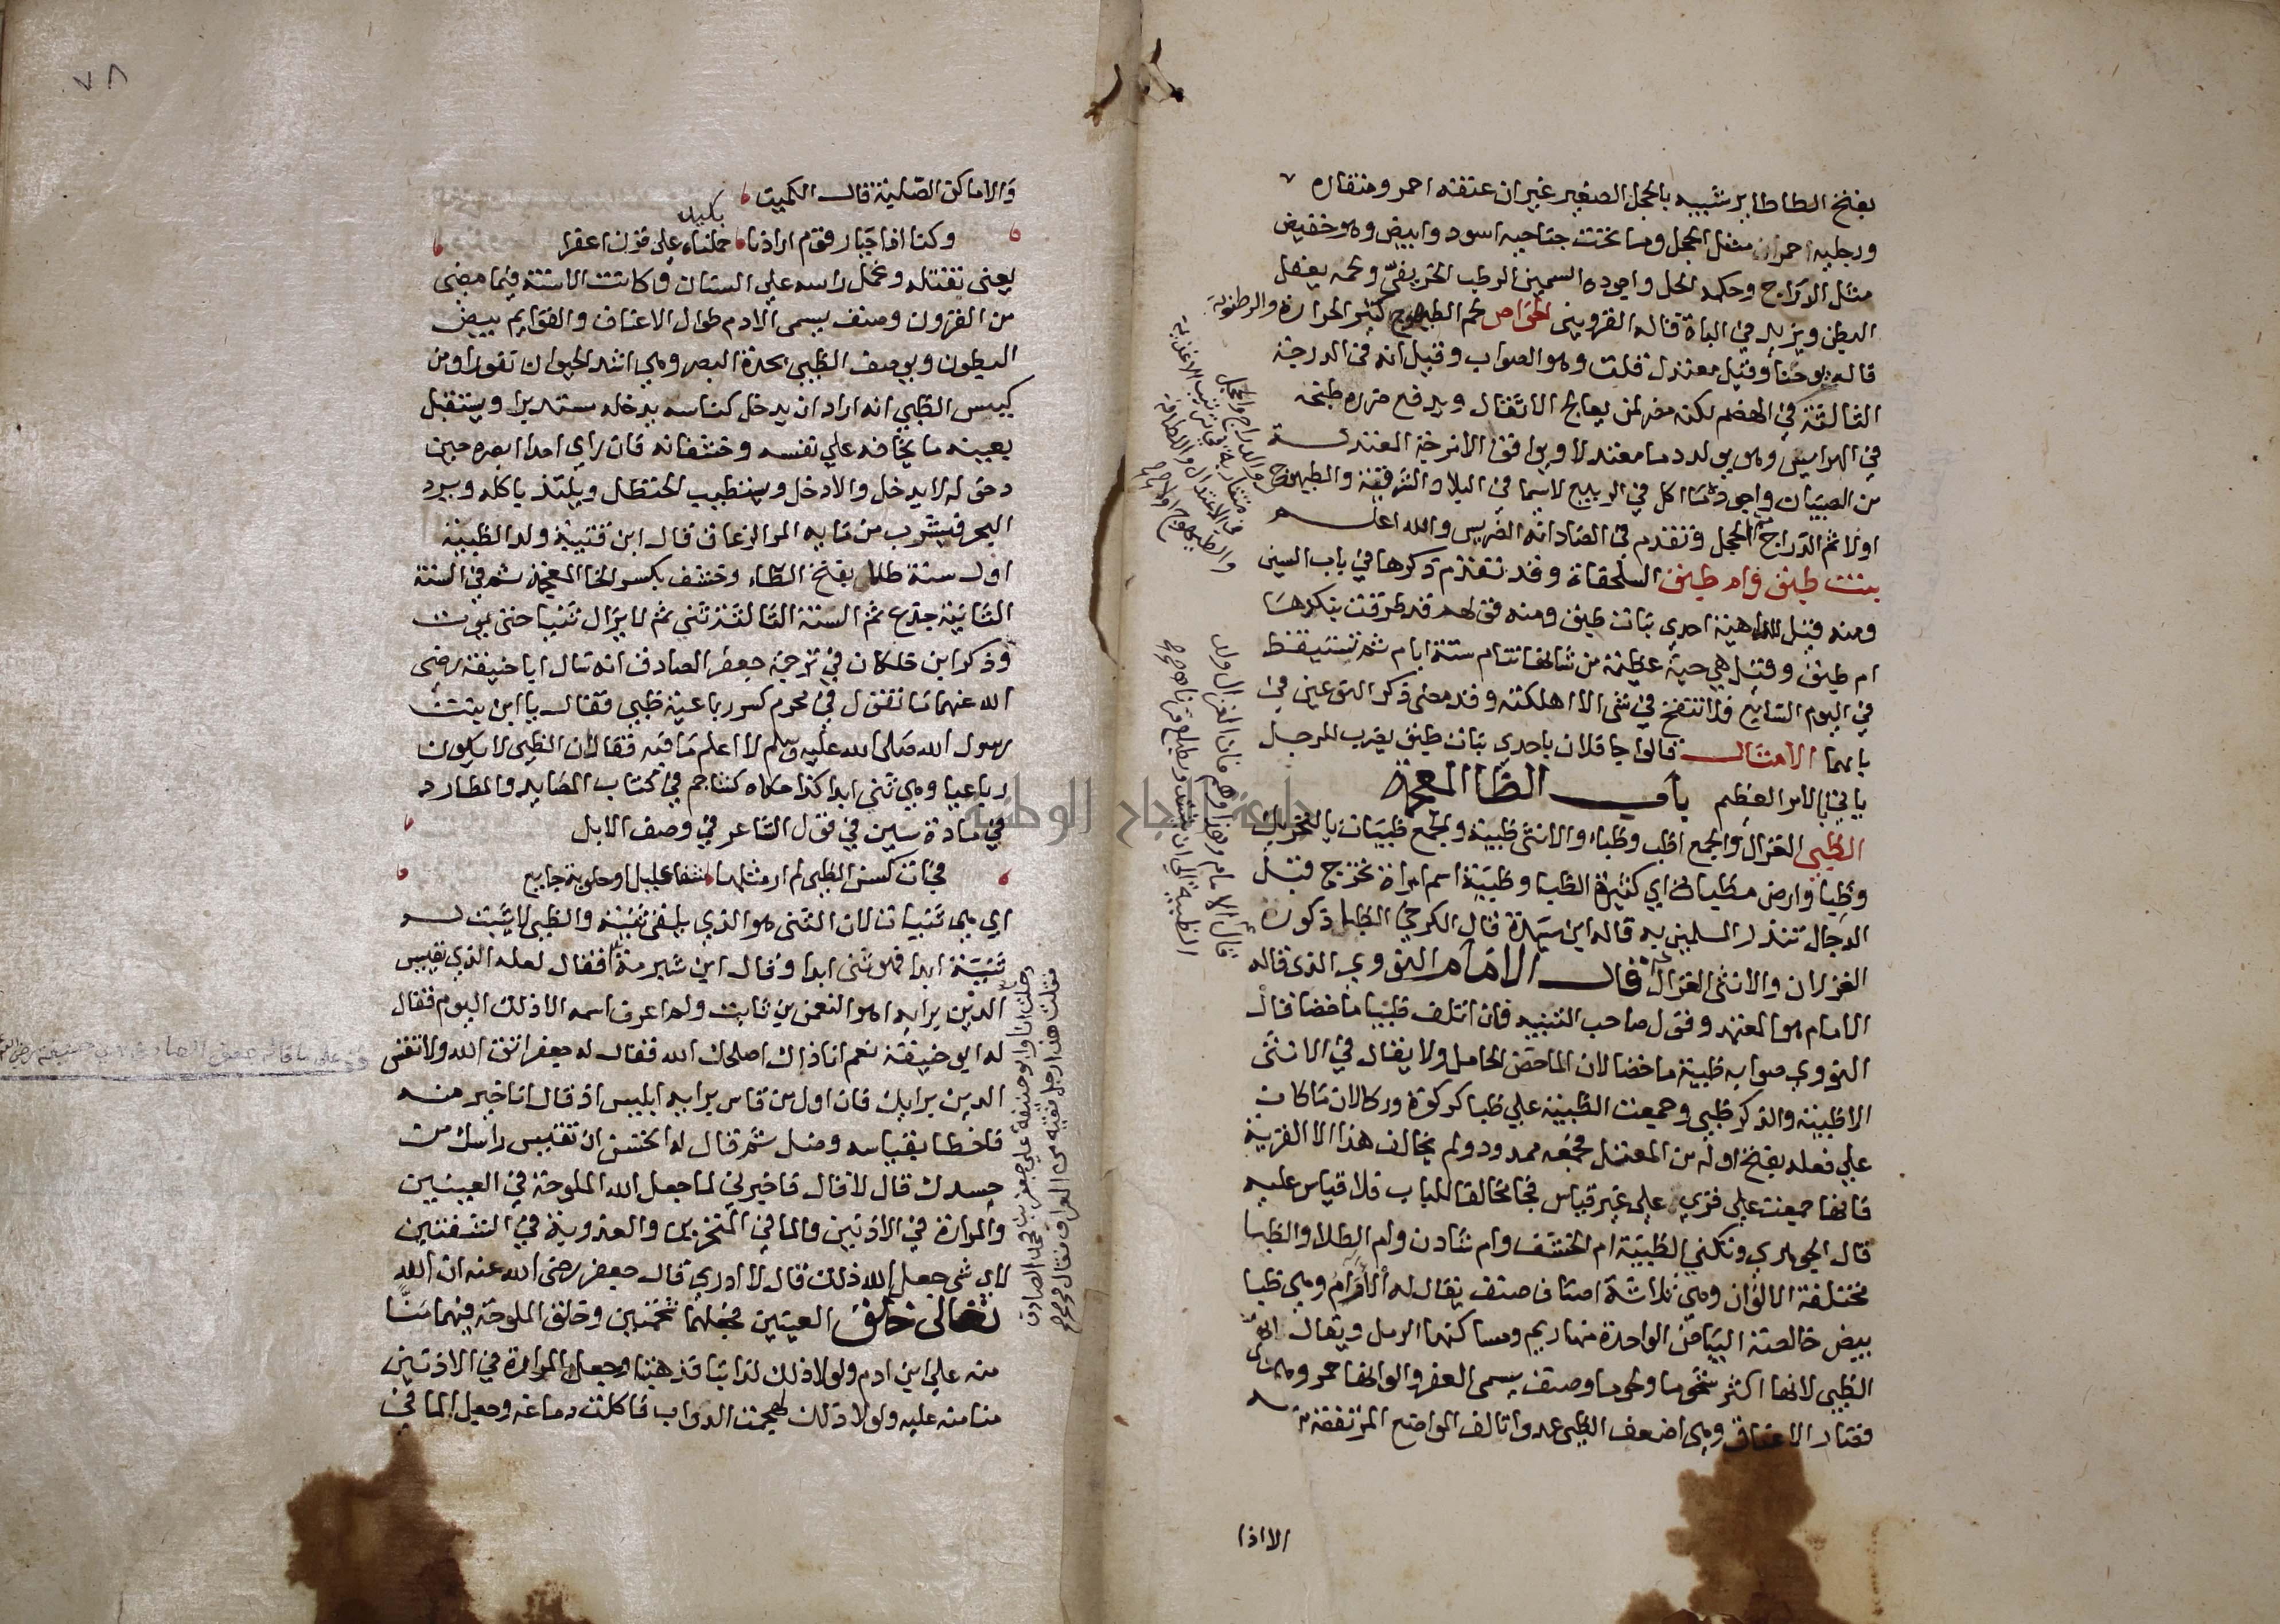 بفتح الطا طاير شبيه بالحجل الصغير غير ان عنقه احمر ومنقاره
ورجليه احمران مثل الحجل وما تحت جناحيه اسود وابيض وهو خفيف
مثل الدراج وحكمه الحل واجوده السمين الرطب الخريفي ولحمه يعقل
البطن ويزيد في الباة قاله القزويني الخواص لحم الطيهوج كثير الحرارة والرطوبة
قاله يوحنا وقيل معتدل قلت وهو الصواب وقيل انه في الدرجة
الثالثة في الهضم لكنه مضر لمن يعالج الاثقال ويدفع ضرره طبخه
في الهرايس وهو يولد دما معتدلا ويوافق الامزجة المعتدلة
من الصبيان واجود ما اكل في الربيع لاسيما في البلاد الشرقية والطيهوج
اولا ثم الدراج ثم الحجل وتقدم في الضاد انه الضريس والله اعلم
بنت طبق وام طبق السلحفاة وقد تقدم ذكرها في باب السين
ومنه قيل للداهية احدي بنات طبق ومنه قولهم قد طرقت ببكرها
ام طبق وقيل هي حية عظيمة من شانها تنام ستة ايام ثم تستيقظ
في اليوم السابع فلا تنفخ في شي الا اهلكته وقد مضي ذكر النوعين في
بابهما الامثال قالوا جا فلان باحدي بنات طبق يضرب للرجل
ياتي بالامر العظيم باب الظا المعجمة
الظبي الغزال والجمع اظب وظباء والانثي ظبية والجمع ظبيات بالتحريك
وظبا وارض مظباة اي كثيرة الظبا وظبية اسم امراة تخرج قبل
الدجال تنذر المسلمين به قاله ابن سيدة قال الكرخي الظبا ذكورة
الغزلان والانثي الغزال قال الامام النووي الذي قاله
الامام هو المعتمد وقول صاحب التنبيه فان اتلف ظبيا ماخضا قال
النووي صوابه ظبية ماخضا لان الماخض الحامل ولا يقال في الانثي
الا ظبية والذكر ظبي وجمعت الظبية علي ظبا كركوة وركا لان ما كان
علي فعله بفتح اوله من المعتل فجمعه ممدود ولم يخالف هذا الا القرية
فانها جمعت علي قري علي غير قياس فجا مخالفا للباب فلا قياس عليه
قال الجوهري وتكني الظبية ام الخشف وام شادن وام الطلا والظبا
مختلفة الالوان وهي ثلاثة اصناف صنف يقال له الارام وهي ظبا
بيض خالصة البياض الواحدة منها ريم ومساكنها الرمل ويقال
الظبي لانها اكثر شحوما ولحوما وصنف يسمي العفر والوانها حمر وهي
قصار الاعناق وهي اضعف الظبي عدوا تالف المواضع المرتفعة
الا اذا
والدراج والحجل
متقاربة في ترتيب الاغذية
في الاعتدال واللطافة
قال الامام وهذا وهم فان الغزال ولد
الظبية الي ان يشتد ويطلع قرناه
٧٨
والاماكن الصلبة قال الكميت
بكيد
وكنا اذا جبار قوم ارادنا حملناه علي قرن اعفرا
يعني نقتله ونحمل راسه علي السنان وكانت الاسنة فيما مضي
من القرون وصنف يسمي الادم طوال الاعناق والقوايم بيض
البطون ويوصف الظبي بحدة البصر وهي اشد الحيوان نفورا ومن
كيس الظبي انه اراد ان يدخل كناسه يدخله مستدبرا ويستقبل
بعينه ما يخافه علي نفسه وخشفانه فان راي احدا ابصره حين
دخوله لا يدخل والا دخل ويستطيب الحنظل ويلتذ ياكله ويرد
البحر فيشرب من مايه المر الزعاق قال ابن قتيبة ولد الظبية
اول سنة طلا بفتح الطاء وخشف بكسر الخا المعجمة ثم في السنة
الثانية جذع ثم السنة الثالثة ثني ثم لا يزال ثنيا حتي يموت
وذكر ابن خلكان في ترجمة جعفر الصادق انه سال ابا حنيفة رضي
الله عنهما ما تقول في محرم كسر رباعية ظبي فقال يا ابن بنت
رسول الله صلي الله عليه وسلم لا اعلم ما فيه فقال ان الظبي لا يكون
رباعيا وهي ثني ابدا كذا حكاه كشاجم في كتاب المصايد والمطارد
في مادة سين في قول الشاعر في وصف الابل
فجات كسن الظبي لم ار مثلها شفا عليل او حلوبة جايع
اي هي ثنيات لان الثني هو الذي يلقي ثنيته والظبي لا يثبت له
ثنية ابدا فهو ثني ابدا وقال ابن شبرمة فقال لعله الذي يقيس
الدين برايه اهو النعمن بن ثابت ولم اعرف اسمه الا ذلك اليوم فقال
له ابو حنيفة نعم انا ذاك اصلحك الله فقال له جعفر اتق الله ولا تقس
الدين برايك فان اول من قاس برايه ابليس اذ قال انا خير منه
فاخطا بقياسه وضل ثم قال له اتحسن ان تقيس راسك من
جسدك قال لا قال فاخبرني لما جعل الله الملوحة في العينين
والمرارة في الاذنين والما في المنخرين والعذوبة في الشفتين
لاي شي جعل الله ذلك قال لا ادري قال جعفر رضي الله عنه ان الله
تعالى خلق العينين فجعلهما شحمتين وخلق الملوحة فيهما منا
منه علي ابن ادم ولولا ذلك لذابتا فذهبتا وجعل المرارة في الاذنين
منا منه عليه ولولا ذلك لهجمت الدواب فاكلت دماغه وجعل الما في
دخلت انا وابو حنيفة علي جعفر بن محمد الصادق
فقلت هذا رجل فقيه من العراق فقال
جامعة النجاح الوطنية